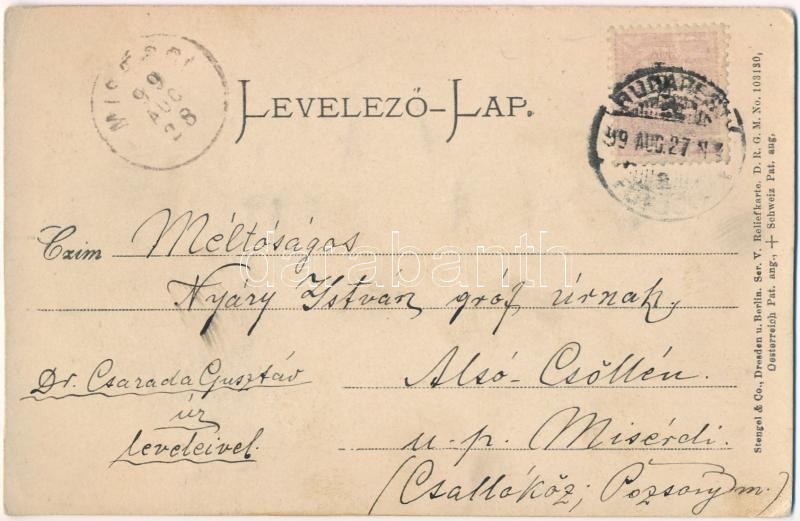 LEVELEZŐ-LAP.
MISÉRDI
99 AUG 28
BUDAPEST
99 AUG. 27
Czim Méltóságos
Nyáry István gróf úrnak,
Alsó-Csöllén.
u. p. Misérdi.
(Csallóköz; Pozsony m.)
Dr. Csarada Gusztáv
úr
leveleivel.
Stengel & Co., Dresden u. Berlin. Ser. V. Reliefkarte. D. R. G. M. No. 103130,
Oesterreich Pat. ang., + Schweiz Pat. ang.
darabanth